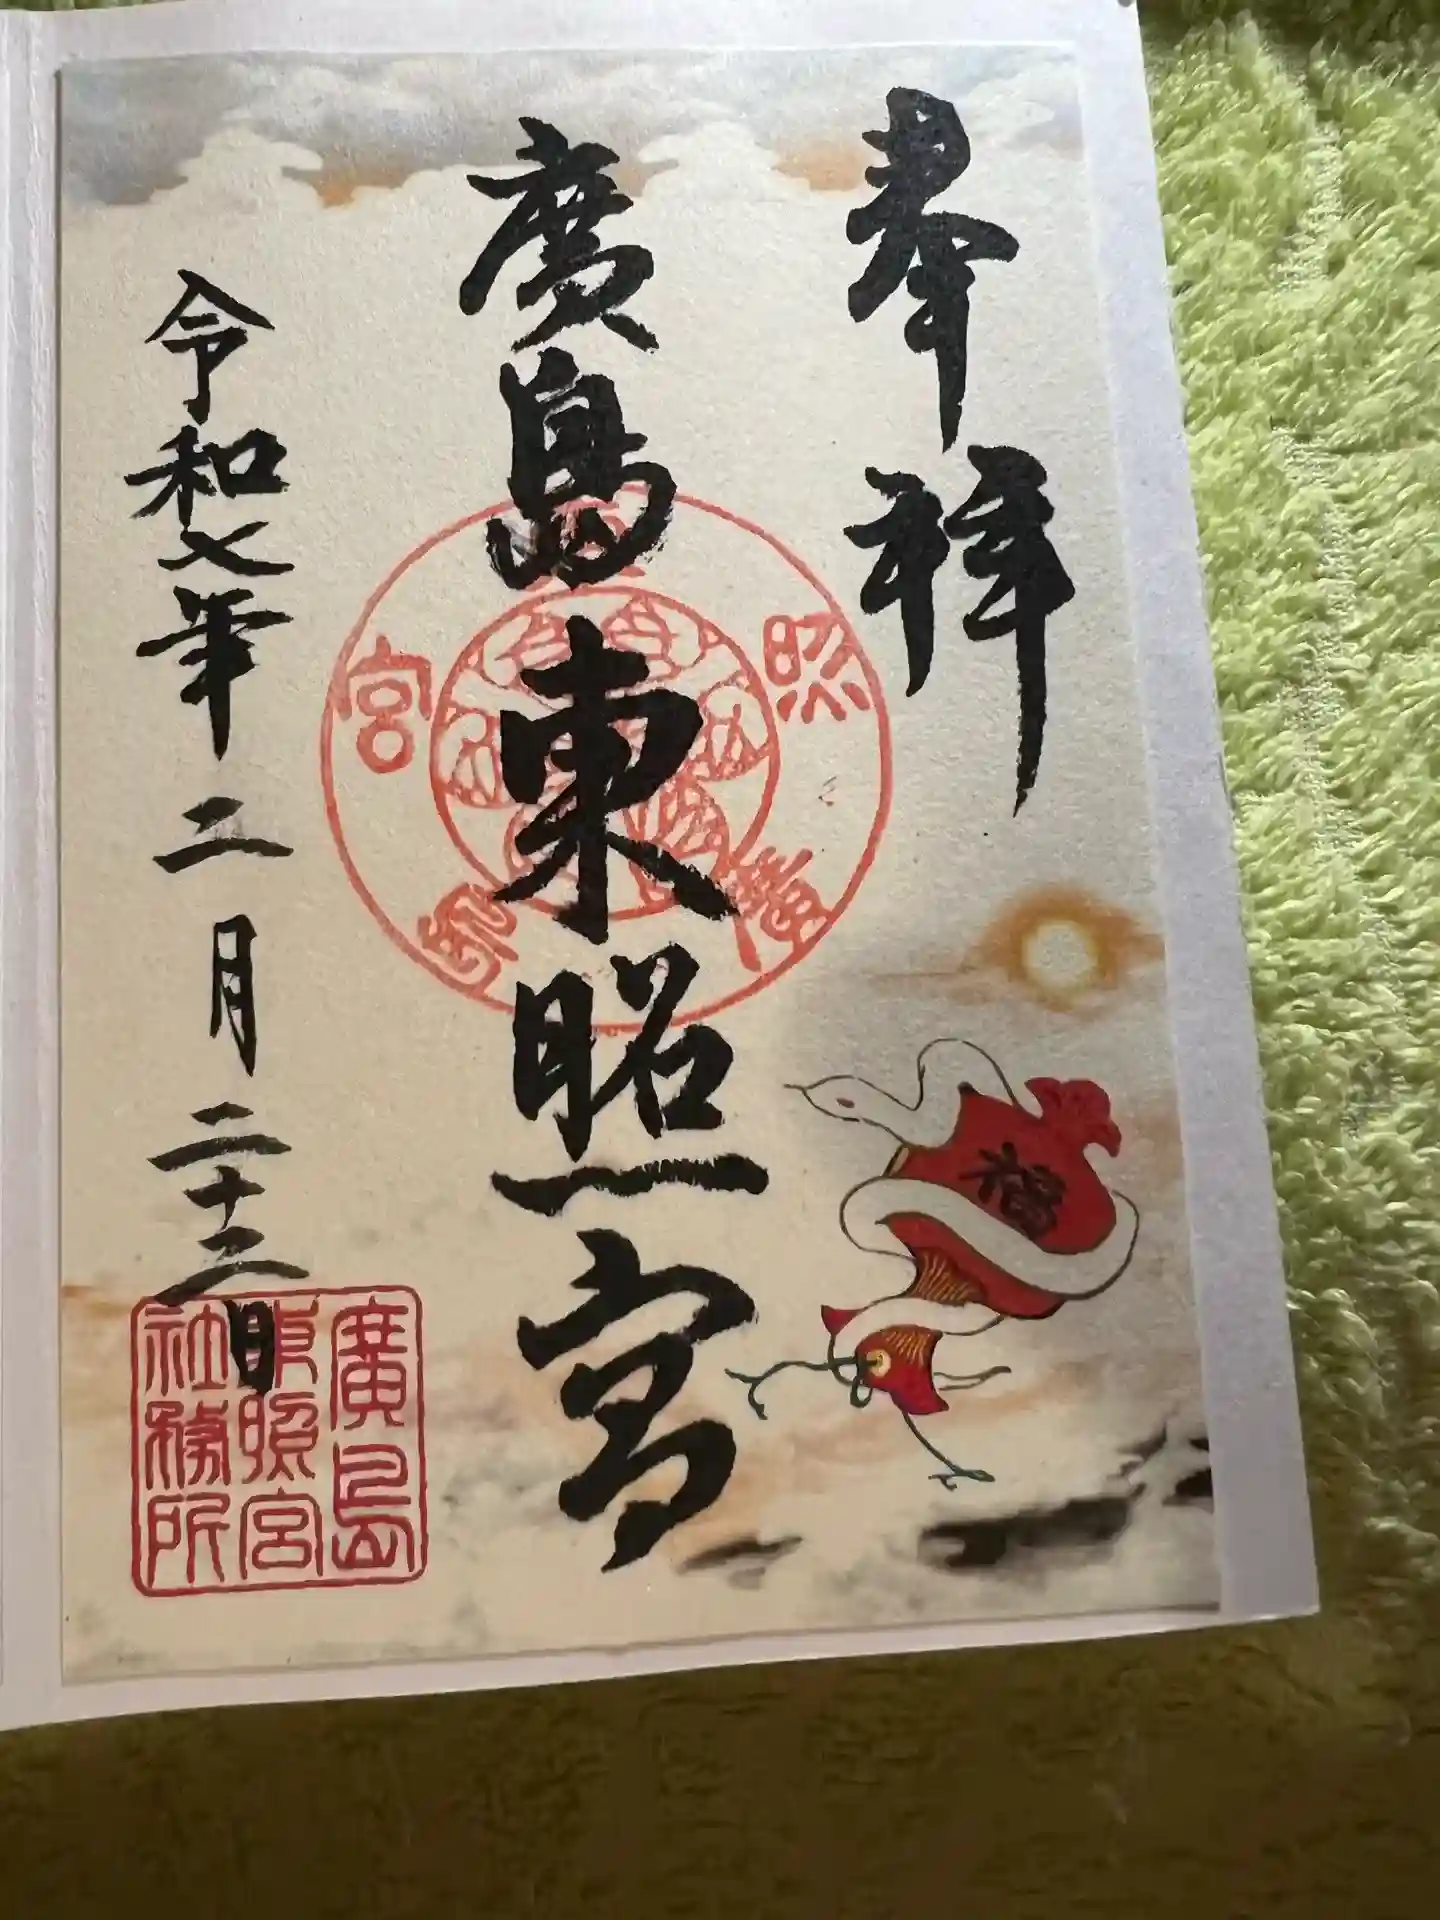 奉拝
廣島東照宮
令和七年二月二十三日
廣島東照宮
福
廣島
東照宮
社務所